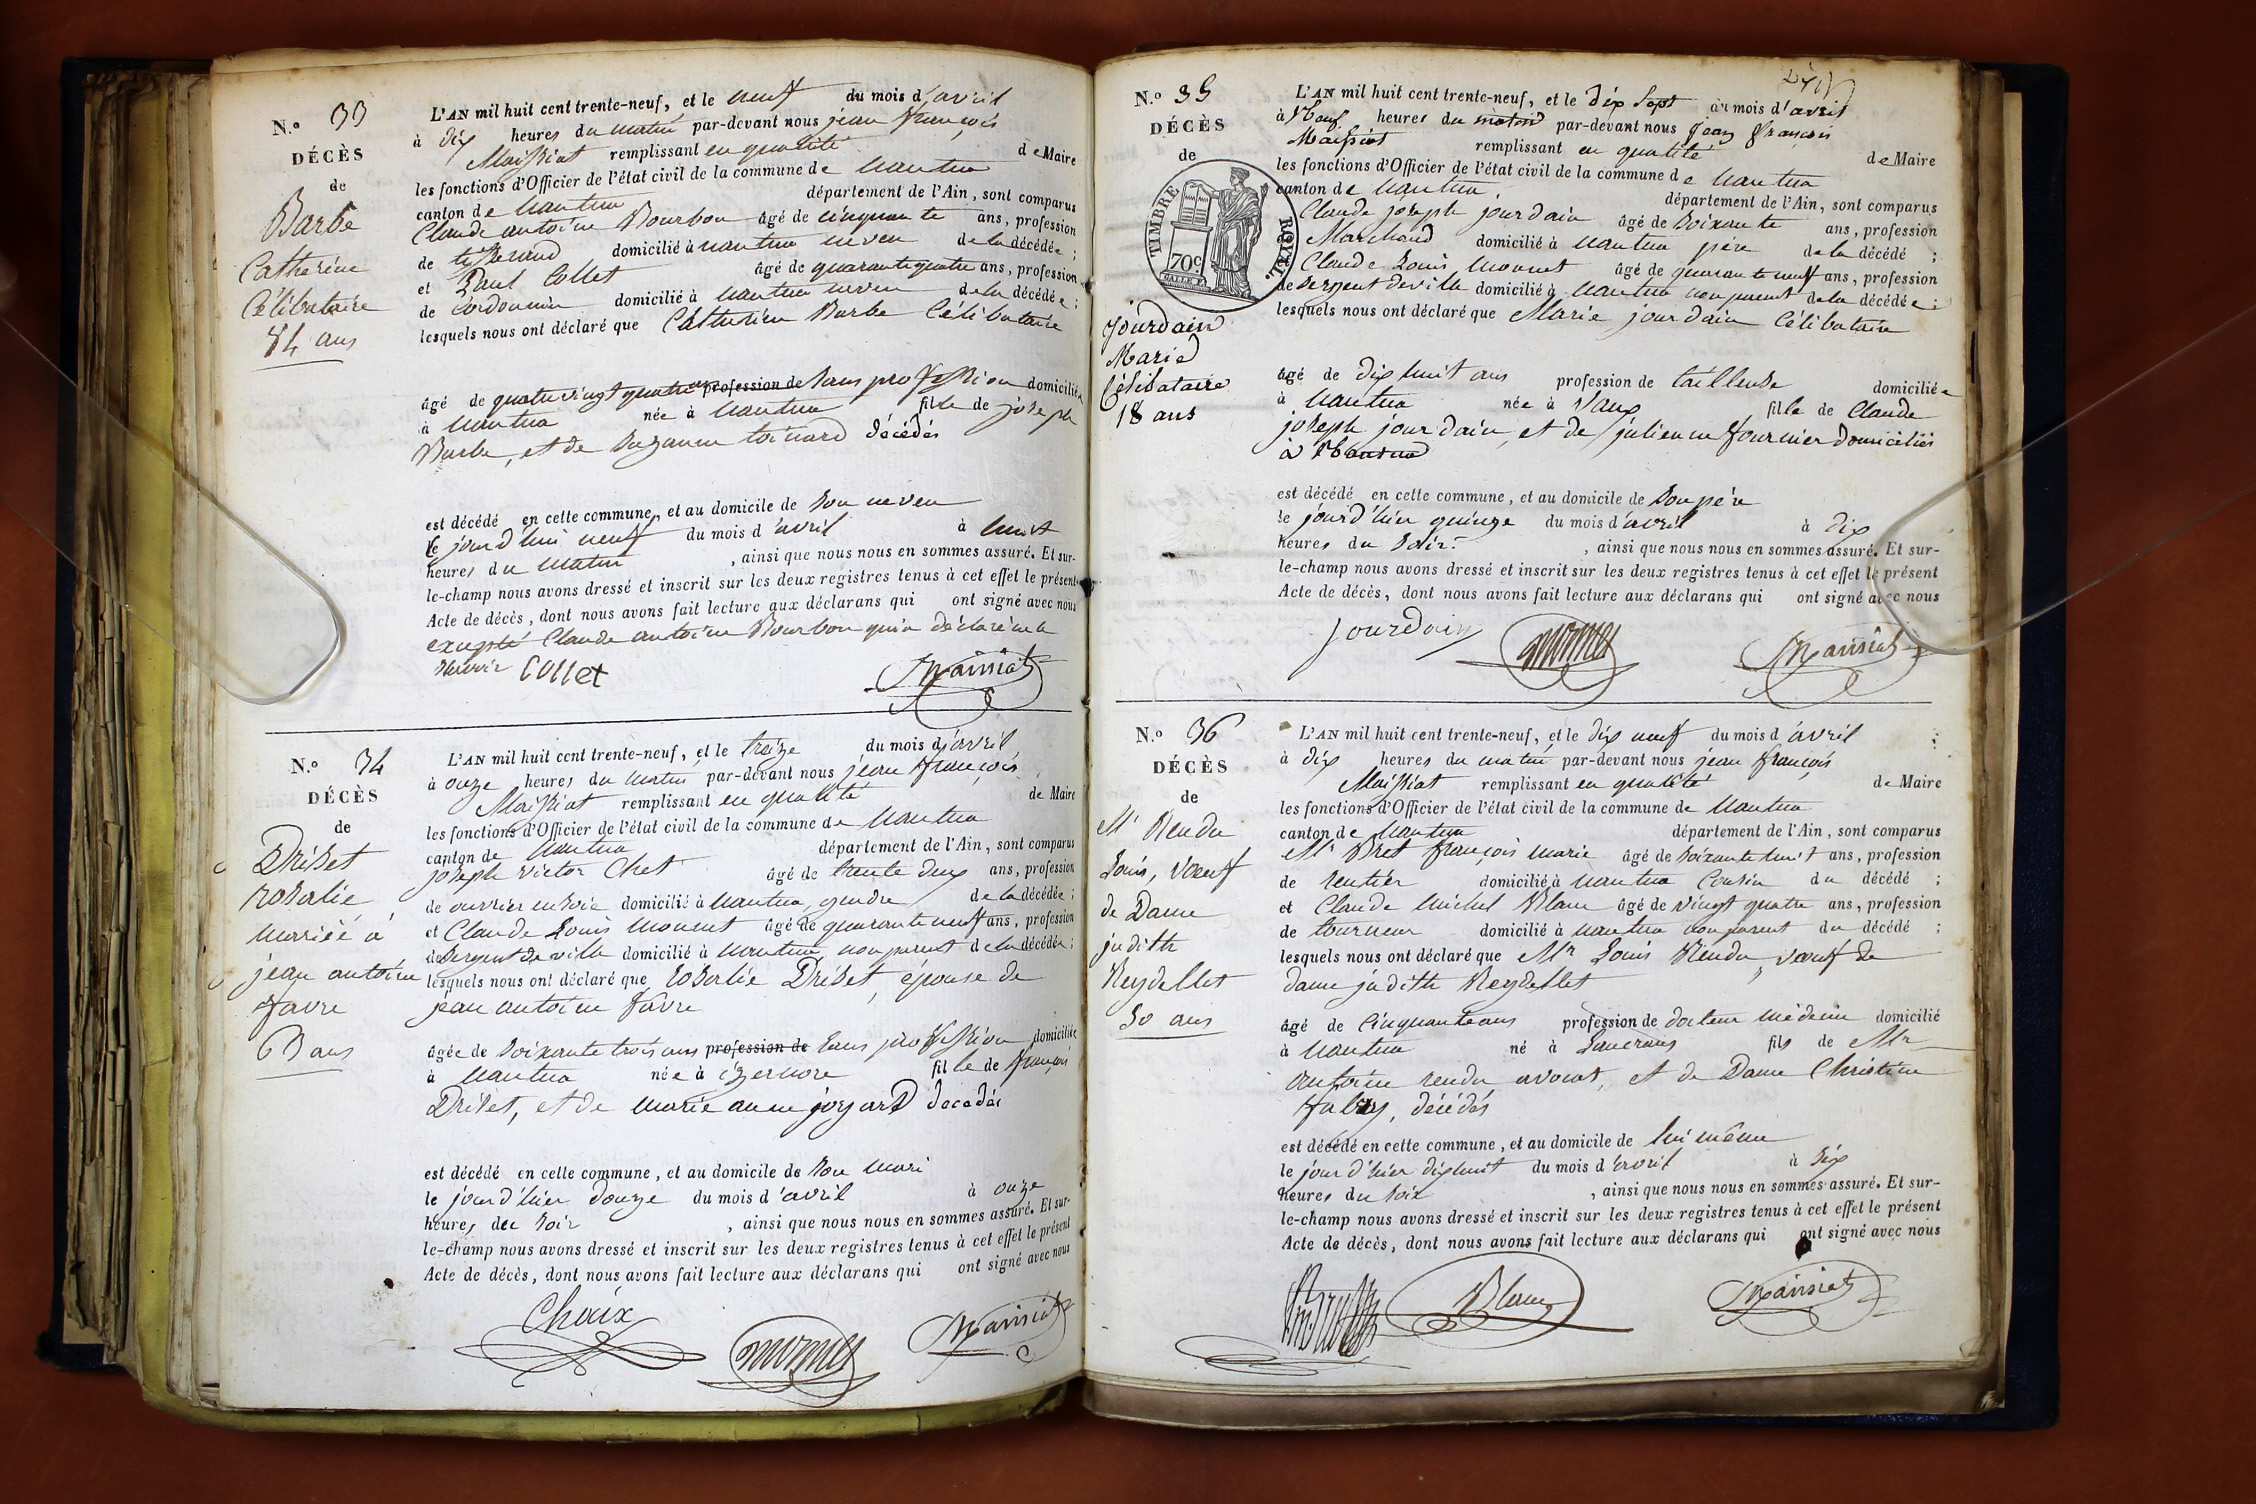 N.o 33
DÉCÈS
de
Barbe
Catherine
Célibataire
84 ans
L'AN mil huit cent trente-neuf, et le neuf du mois d'avril
à dix heures du matin par-devant nous jean françois
Maissiat remplissant en qualité de Maire
les fonctions d'Officier de l'état civil de la commune de Nantua
canton de Nantua département de l'Ain, sont comparus
Claude antoine Bourbon âgé de cinquante ans, profession
de tisserand domicilié à nantua neveu de la décédée ;
et Paul Collet âgé de quarante quatre ans, profession
de Cordonnier domicilié à nantua neveu de la décédée ;
lesquels nous ont déclaré que Catherine Barbe Célibataire
âgé de quatre vingt quatre ans profession de sans profession domiciliée
à Nantua née à Nantua fille de joseph
Barbe, et de Suzanne toinard décédés
est décédé en cette commune, et au domicile de son neveu
le jourd'hui neuf du mois d'avril à huit
heures du matin, ainsi que nous nous en sommes assuré. Et sur-
le-champ nous avons dressé et inscrit sur les deux registres tenus à cet effet le présent
Acte de décès, dont nous avons fait lecture aux déclarans qui ont signé avec nous
excepté Claude antoine Bourbon qui a déclaré ne le
savoir Collet Maissiat
N.o 34
DÉCÈS
de
Drivet
rosalie
mariée à
jean antoine
favre
63 ans
L'AN mil huit cent trente-neuf, et le treize du mois d'avril
à onze heures du matin par-devant nous jean françois
Maissiat remplissant en qualité de Maire
les fonctions d'Officier de l'état civil de la commune de Nantua
canton de Nantua département de l'Ain, sont comparus
joseph victor Chaix âgé de trente deux ans, profession
de ouvrier en soie domicilié à Nantua, gendre de la décédée ;
et Claude Louis monnet âgé de quarante neuf ans, profession
de Sergent de ville domicilié à nantua, non parent de la décédée ;
lesquels nous ont déclaré que rosalie Drivet, épouse de
jean antoine favre
âgée de soixante trois ans profession de sans profession domiciliée
à Nantua née à izernore fille de françois
Drivet, et de marie anne joyard décédés
est décédé en cette commune, et au domicile de son mari
le jour d'hier douze du mois d'avril à onze
heures du soir, ainsi que nous nous en sommes assuré. Et sur-
le-champ nous avons dressé et inscrit sur les deux registres tenus à cet effet le présent
Acte de décès, dont nous avons fait lecture aux déclarans qui ont signé avec nous
Chaix monnet Maissiat
N.o 35
DÉCÈS
de
TIMBRE ROYAL.
70c
jourdain
Marie
Célibataire
18 ans
L'AN mil huit cent trente-neuf, et le dix sept du mois d'avril
à Neuf heures du matin par-devant nous jean françois
Maissiat remplissant en qualité de Maire
les fonctions d'Officier de l'état civil de la commune de Nantua
canton de Nantua, département de l'Ain, sont comparus
Claude joseph jourdain âgé de soixante ans, profession
Marchand domicilié à Nantua père de la décédé ;
Claude Louis monnet âgé de quarante neuf ans, profession
de Sergent de ville domicilié à Nantua non parent de la décédée ;
lesquels nous ont déclaré que Marie jourdain Célibataire
âgé de dix huit ans profession de tailleuse domiciliée
à Nantua née à Vaux fille de Claude
joseph jourdain, et de julienne fournier domiciliés
à Nantua
est décédé en cette commune, et au domicile de son père
le jour d'hier quinze du mois d'avril à dix
heures du soir. , ainsi que nous nous en sommes assuré. Et sur-
le-champ nous avons dressé et inscrit sur les deux registres tenus à cet effet le présent
Acte de décès, dont nous avons fait lecture aux déclarans qui ont signé avec nous
Jourdain monnet Maissiat
N.o 36
DÉCÈS
de
Mr Rendu
Louis, veuf
de Dame
judith
Reydellet
50 ans
L'AN mil huit cent trente-neuf, et le dix neuf du mois d'avril
à dix heures du matin par-devant nous jean françois
Maissiat remplissant en qualité de Maire
les fonctions d'Officier de l'état civil de la commune de Nantua
canton de Nantua département de l'Ain, sont comparus
Mr Bret françois marie âgé de soixante huit ans, profession
de rentier domicilié à nantua Cousin du décédé ;
et Claude michel Blanc âgé de vingt quatre ans, profession
de tourneur domicilié à nantua non parent du décédé ;
lesquels nous ont déclaré que Mr Louis Rendu, veuf de
dame judith Reydellet
âgé de cinquante ans profession de docteur médecin domicilié
à Nantua né à fils de Mr
antoine rendu avocat, et de Dame Christine
décédés
est décédé en cette commune, et au domicile de lui même
le jour d'hier dix huit du mois d'avril à six
heures du soir, ainsi que nous nous en sommes assuré. Et sur-
le-champ nous avons dressé et inscrit sur les deux registres tenus à cet effet le présent
Acte de décès, dont nous avons fait lecture aux déclarans qui ont signé avec nous
Blanc Maissiat